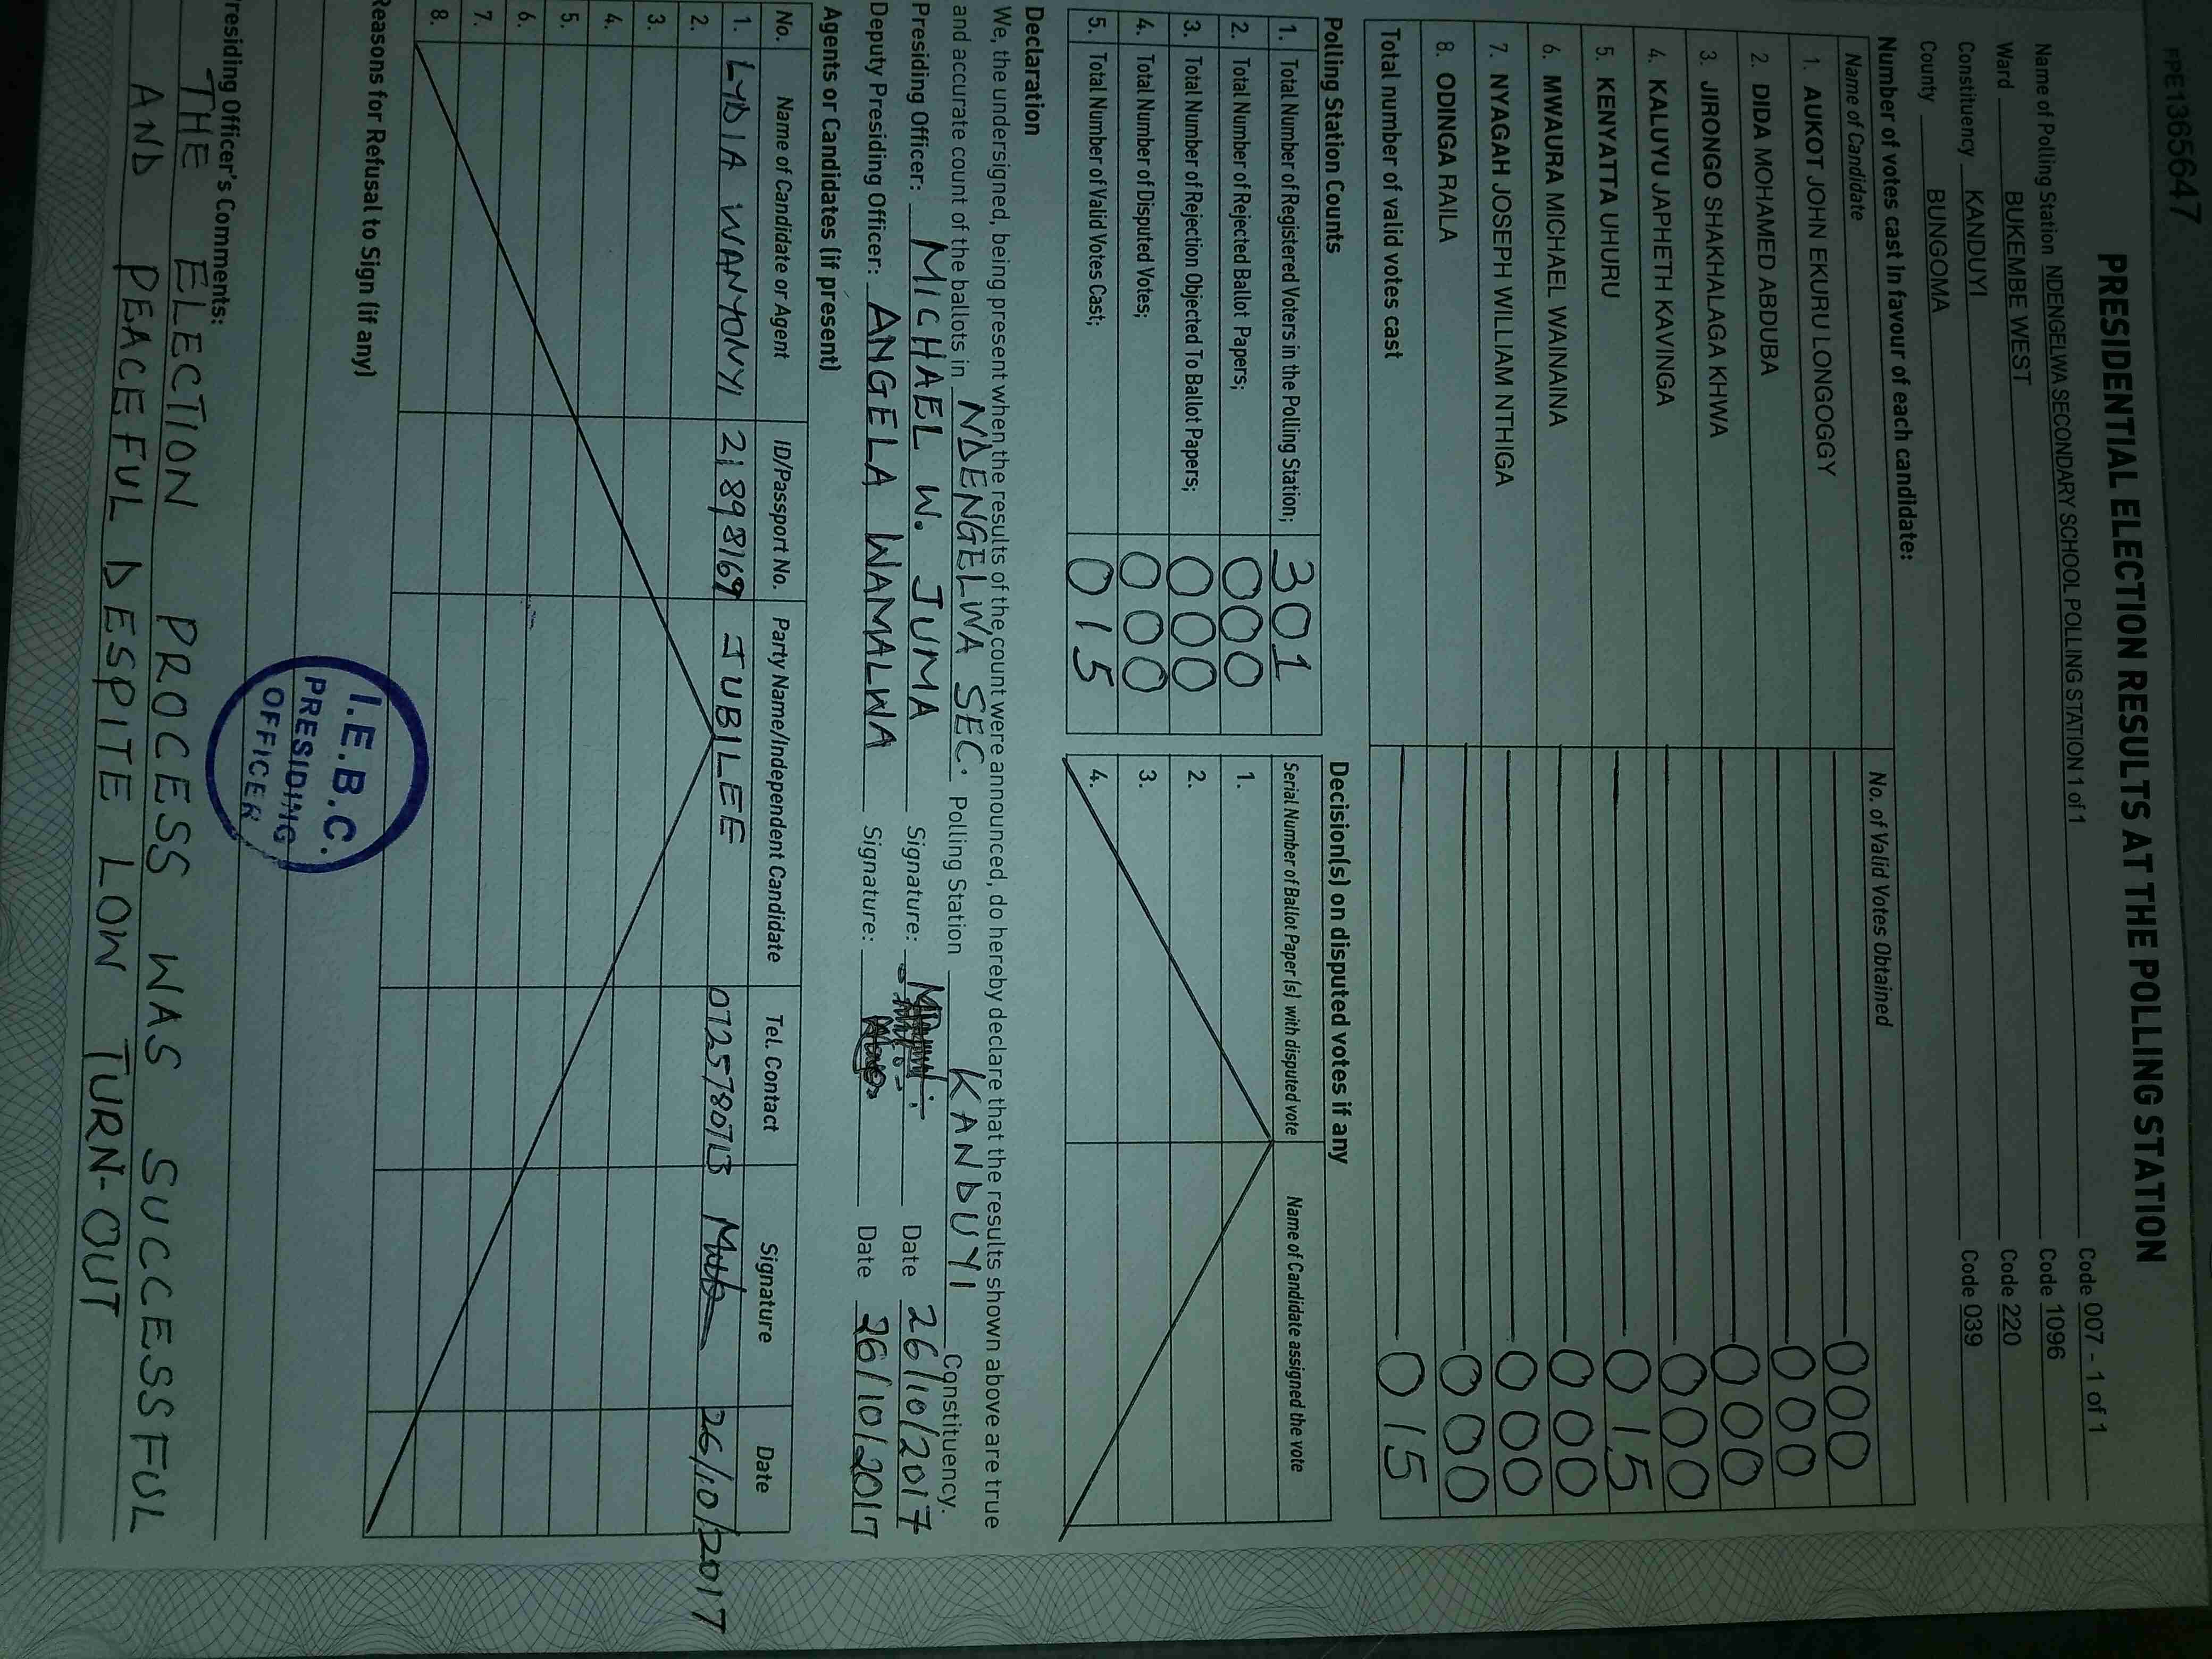 PPE1365647
PRESIDENTIAL ELECTION RESULTS AT THE POLLING STATION
Name of Polling Station NDENGELWA SECONDARY SCHOOL POLLING STATION 1 of 1 Code 007 - 1 of 1
Ward BUKEMBE WEST Code 1096
Constituency KANDUYI Code 220
County BUNGOMA Code 039
Number of votes cast in favour of each candidate:
Name of Candidate No. of Valid Votes Obtained
1. AUKOT JOHN EKURU LONGOGGY 000
2. DIDA MOHAMED ABDUBA 000
3. JIRONGO SHAKHALAGA KHWA 000
4. KALUYU JAPHETH KAVINGA 000
5. KENYATTA UHURU 015
6. MWAURA MICHAEL WAINAINA 000
7. NYAGAH JOSEPH WILLIAM NTHIGA 000
8. ODINGA RAILA 000
Total number of valid votes cast 015
Polling Station Counts Decision(s) on disputed votes if any
1. Total Number of Registered Voters in the Polling Station; 301 Serial Number of Ballot Paper (s) with disputed vote Name of Candidate assigned the vote
2. Total Number of Rejected Ballot Papers; 000 1.
3. Total Number of Rejection Objected To Ballot Papers; 000 2.
4. Total Number of Disputed Votes; 000 3.
5. Total Number of Valid Votes Cast; 015 4.
Declaration
We, the undersigned, being present when the results of the count were announced, do hereby declare that the results shown above are true
and accurate count of the ballots in NDENGELWA SEC. Polling Station KANDUYI Constituency.
Presiding Officer: MICHAEL W. JUMA Signature: Date 26/10/2017
Deputy Presiding Officer: ANGELA WAMALWA Signature: Date 26/10/2017
Agents or Candidates (if present)
No. Name of Candidate or Agent ID/Passport No. Party Name/Independent Candidate Tel. Contact Signature Date
1. LYDIA WANYONYI 21898169 JUBILEE 0725780713 26/10/2017
2.
3.
4.
5.
6.
7.
8.
Reasons for Refusal to Sign (if any)
I.E.B.C.
PRESIDING
OFFICER
Presiding Officer's Comments:
THE ELECTION PROCESS WAS SUCCESSFUL
AND PEACEFUL DESPITE LOW TURN-OUT